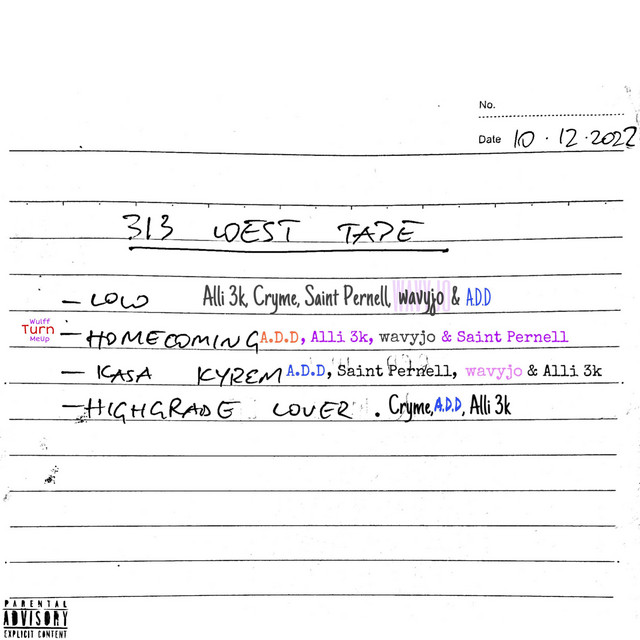 No.
Date 10.12.2022
313 WEST TAPE
- LOLO Alli 3k, Cryme, Saint Pernell, wavyjo & A.D.D
Wulff
Turn
MeUp
- HOMECOMING A.D.D, Alli 3k, wavyjo & Saint Pernell
- KASA KYREM A.D.D, Saint Pernell, wavyjo & Alli 3k
- HIGHGRADE LOVER . Cryme, A.D.D, Alli 3k
PARENTAL
ADVISORY
EXPLICIT CONTENT